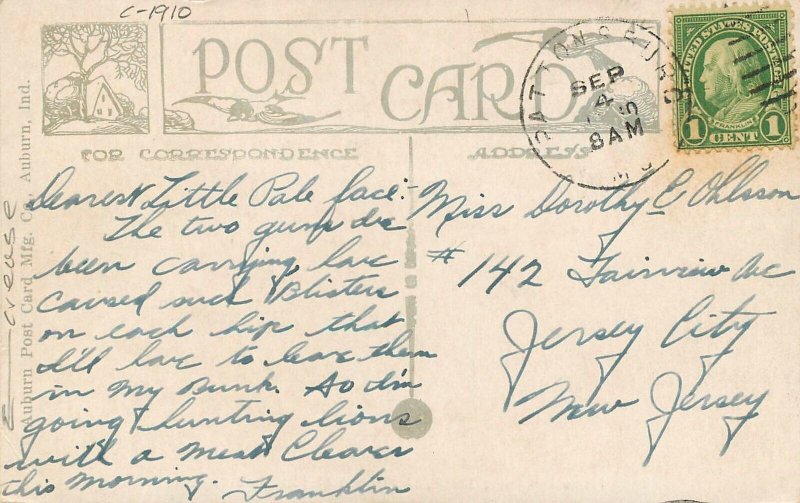 C-1910
POST CARD
FOR CORRESPONDENCE
ADDRESS
PATTONSBURG
SEP
4
8 AM
MO
UNITED STATES POSTAGE
FRANKLIN
1 CENT 1
Dearest Little Pale face:-
The two guns I've
been carrying, have
caused such Blisters
on each hip that
I'll have to leave them
in my Bunk. So I'm
going hunting lions
with a Meat Cleaver
this Morning.
Franklin
Miss Dorothy E Ohlsson
# 142 Fairview Ave
Jersey City
New Jersey
Auburn Post Card Mfg. Co., Auburn, Ind.
Crease